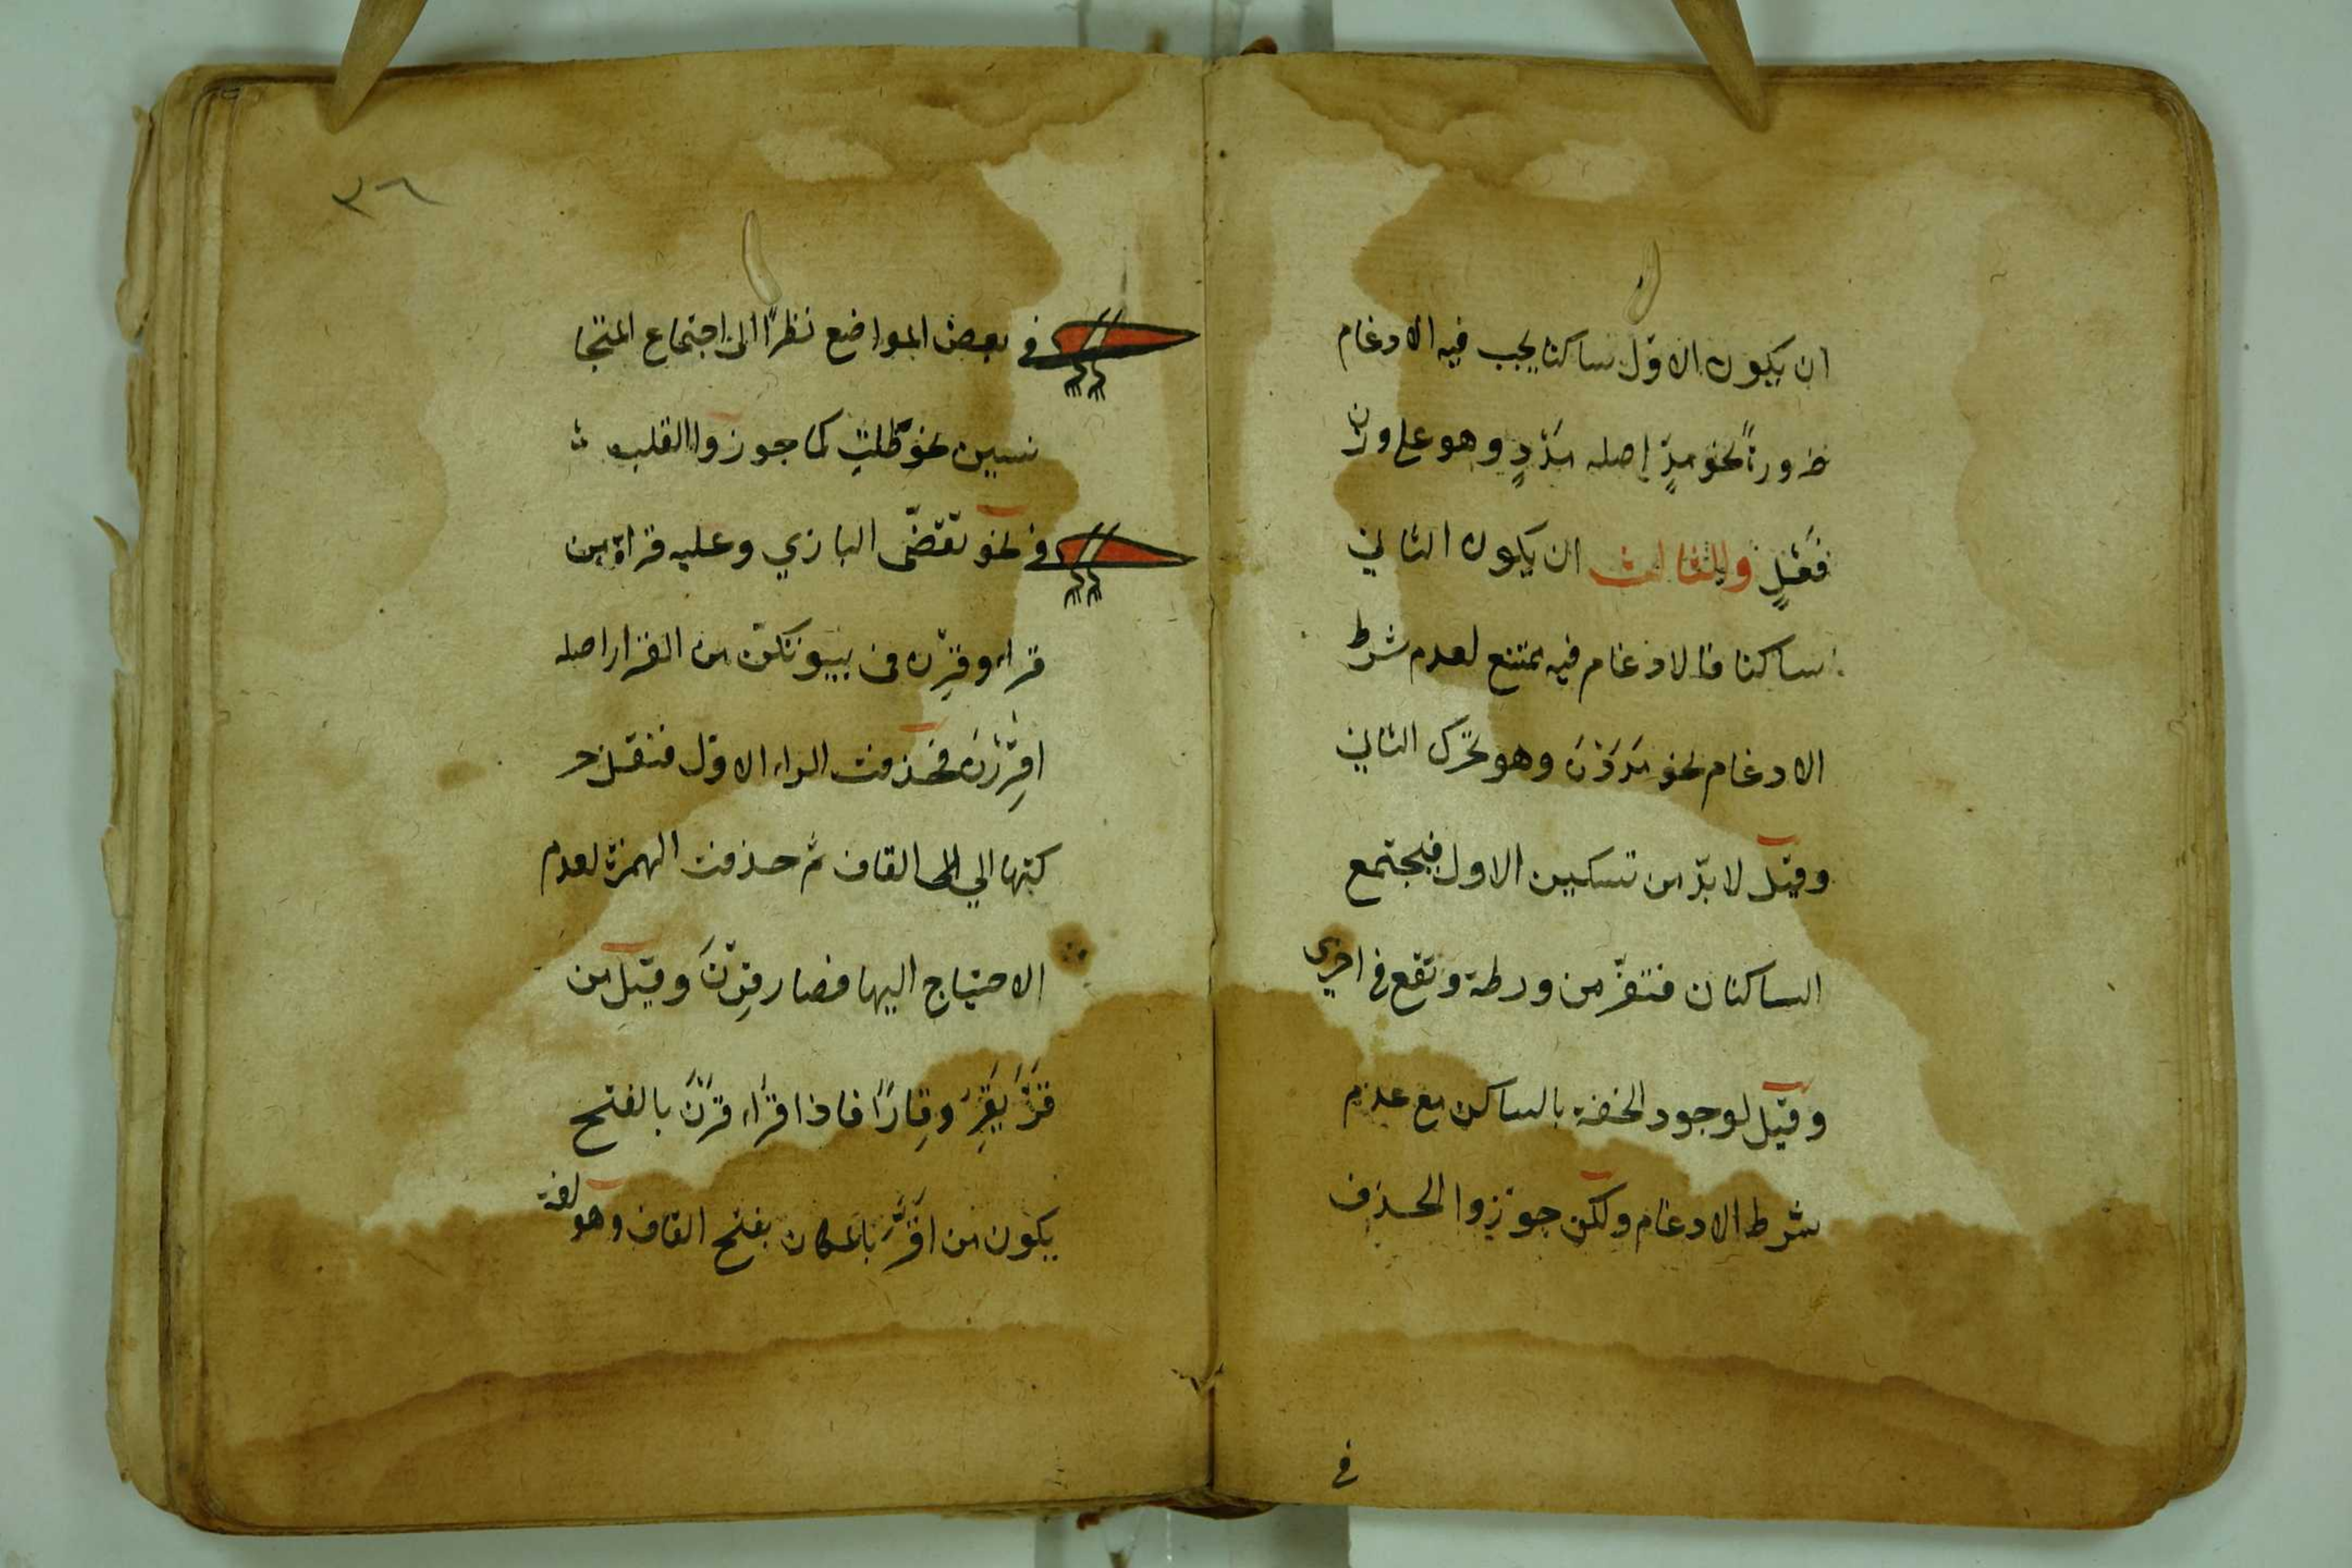 ان يكون الاوّل ساكنا يجب فيه الادغام
ضرورةً نحو مدٍّ اصله مَدْدٍ وهو على وزن
فَعْلٍ والثالث ان يكون الثاني
ساكنا فالادغام فيه ممتنع لعدم شرط
الادغام نحو مَدَدْنَ وهو تحرك الثاني
وقيل لا بدّ من تسكين الاول فيجتمع
الساكنان فتفرّ من ورطة وتقع في اخرى
وقيل لوجود الخفة بالساكن مع عدم
شرط الادغام ولكن جوّزوا الحذف
في
٣٦
في بعض المواضع نظرًا الى اجتماع المتجا
نسين نحو ظلت كما جوزوا القلب
في نحو تقضّى البازي وعليه قراة من
قراء وقِرْن في بيوتكن من القرار اصله
اقِرْرْنَ فحذفت الراء الاول فنقل حر
كتها الي القاف ثم حذفت الهمزة لعدم
الاحتياج اليها فصار قِرْنَ وقيل من
قَرَّ يَقِرُّ وقِارًا فاذا قراء قَرْنَ بالفتح
يكون من اَقَرُّ بالمكان بفتح القاف وهو لغة